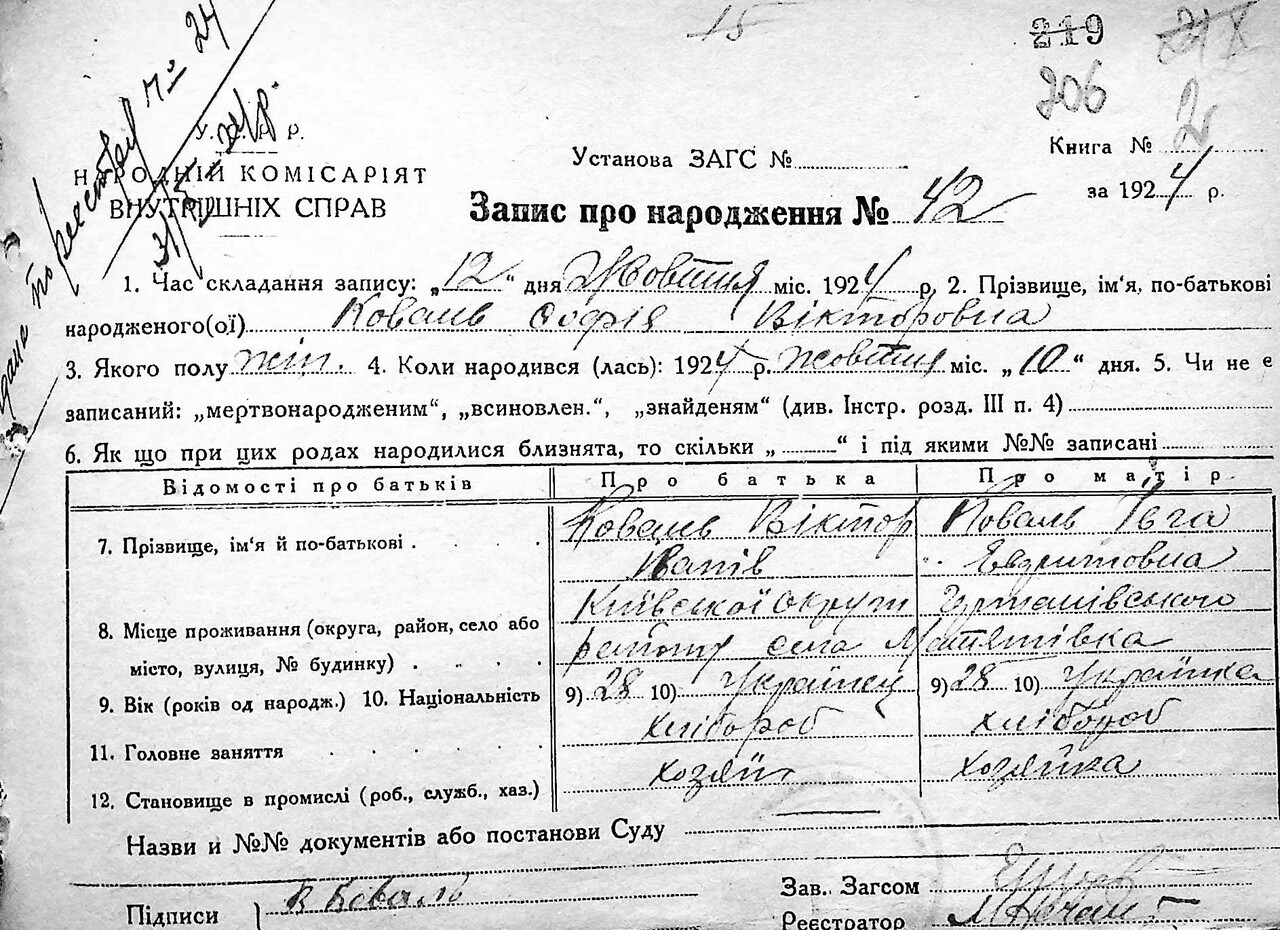 15
219
206
2
У.С.Р.Р.
НАРОДНІЙ КОМІСАРІЯТ
ВНУТРІШНІХ СПРАВ
по реестру № 24
Установа ЗАГС №
Книга №
за 1924 р.
Запис про народження № 42
1. Час складання запису: „12“ дня Жовтня міс. 1924 р, 2. Прізвище, ім'я, по-батькові
народженого(ої) Коваль Софія Вікторовна
3. Якого полу жін. 4. Коли народився (лась): 1924 р. жовтня міс. „10“ дня. 5. Чи не є
записаний: „мертвонародженим“, „всиновлен.“, „знайденям“ (див. Інстр. розд. III п. 4)
6. Як що при цих родах народилися близнята, то скільки „ “ і під якими №№ записані
Відомості про батьків Про батька Про матір
7. Прізвище, ім'я й по-батькові Коваль Віктор Іванів Коваль Ївга
8. Місце проживання (округа, район, село або Київської округи
місто, вулиця, № будинку) району села Мотятівка
9. Вік (років од народж.) 10. Національність 9) 28 10) Українец 9) 28 10) Українка
11. Головне заняття хлібороб хлібороб
12. Становище в промислі (роб., служб., хаз.) хозяін хозяйка
Назви и №№ документів або постанови Суду
Підписи В Коваль
Зав. Загсом
Реєстратор